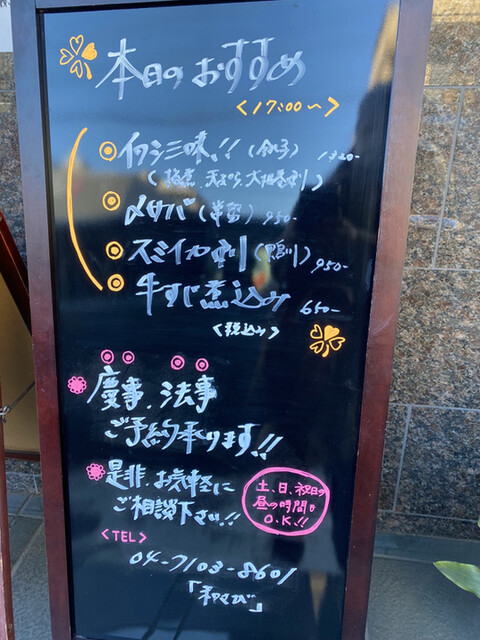 本日のおすすめ
<17:00〜>
イワシ三味!! (銚子)
(梅煮、天ぷら、大根巻刺)
〆サバ (半身) 950-
スミイカ刺 (鴨川) 950-
牛すじ煮込み 650-
<税込み>
慶事、法事
ご予約承ります!!
是非、お気軽に
ご相談下さい!!
土、日、祝日の
昼の時間も
O.K.!!
<TEL>
04-7103-8601